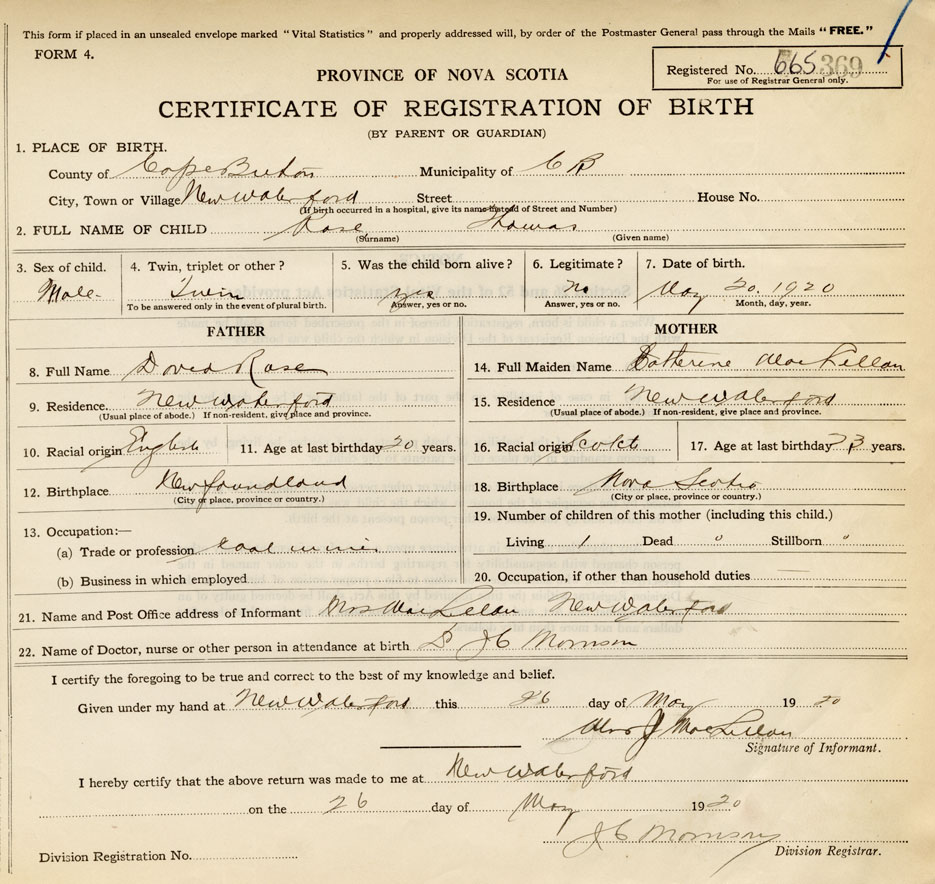 This form if placed in an unsealed envelope marked "Vital Statistics" and properly addressed will, by order of the Postmaster General pass through the Mails "FREE."
FORM 4.
Registered No. 665 369
For use of Registrar General only.
PROVINCE OF NOVA SCOTIA
CERTIFICATE OF REGISTRATION OF BIRTH
(BY PARENT OR GUARDIAN)
1. PLACE OF BIRTH.
County of Cape Breton Municipality of C B
City, Town or Village New Waterford Street House No.
(If birth occurred in a hospital, give its name instead of Street and Number)
2. FULL NAME OF CHILD Rose Thomas
(Surname) (Given name)
3. Sex of child. 4. Twin, triplet or other? 5. Was the child born alive? 6. Legitimate? 7. Date of birth.
Male. Twin yes no May 20. 1920
To be answered only in the event of plural birth. Answer, yes or no. Answer, yes or no. Month, day, year.
FATHER
8. Full Name David Rose
9. Residence. New Waterford
(Usual place of abode.) If non-resident, give place and province.
10. Racial origin English 11. Age at last birthday 20 years.
12. Birthplace Newfoundland
(City or place, province or country.)
13. Occupation:—
(a) Trade or profession coal miner
(b) Business in which employed
MOTHER
14. Full Maiden Name Catherine MacLellan
15. Residence New Waterford
(Usual place of abode.) If non-resident, give place and province.
16. Racial origin Scotch 17. Age at last birthday 23 years.
18. Birthplace Nova Scotia
(City or place, province or country.)
19. Number of children of this mother (including this child.)
Living 1 Dead " Stillborn "
20. Occupation, if other than household duties
21. Name and Post Office address of Informant Mrs MacLellan New Waterford
22. Name of Doctor, nurse or other person in attendance at birth J C Morrison
I certify the foregoing to be true and correct to the best of my knowledge and belief.
Given under my hand at New Waterford this 26 day of May 19 20
Mrs J MacLellan
Signature of Informant.
I hereby certify that the above return was made to me at New Waterford
on the 26 day of May 19 20
J C Morrison
Division Registration No. Division Registrar.